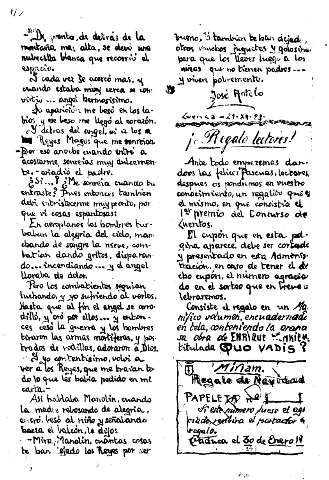 "De pronto, de detrás de la
montaña más alta, se elevó una
nubecilla blanca que recorrió el
espacio.
Y cada vez se acercó más, y
cuando estaba muy cerca se con-
virtió... angel hermosísimo.
Su aparición me besó en los la-
bios, y ese beso me llegó al corazón.
Y detrás del angel, vi a los
Reyes Magos que me sonreían
por eso anoche cuando entré a
acostarme, sonreías muy dulcemen-
te,- añadió el padre.
¿Sí...? ¿Me sonreía cuando tu
entraste? Pues entonces también
debí entristecerme muy pronto, por
que vi cosas espantosas:
En aeroplanos los hombres tur-
baban la alegría del cielo, man-
chando de sangre la nieve, com-
batían dando gritos, disparan-
do... incendiando.... y el angel
lloraba de dolor.
Pero los combatientes seguían
luchando, y yo sufriendo al verlos,
hasta que al fin el angel se arro-
dilló, y oró por ellos... y enton-
ces cesó la guerra y los hombres
tiraron las armas mortíferas, y pos-
trados de rodillas, adoraron a Dios.
Y yo contentísimo, volví a
ver a los Reyes, que me traían to-
do lo que les había pedido en mi
carta.-
Así hablaba Manolín, cuando
la madre rebosando de alegría,
besó al niño y señalando
hacia el balcón, le dijo:
-Mira, Manolín, cuántas cosas
te han dejado los Reyes por ser
bueno. Y también te han dejado
otros muchos juguetes y golosinas
para que los lleves luego a los
niños que no tienen padres---
y viven pobremente.
José Antelo
Cuenca-29-XII-
¡¡Regalo lectores!!
Ante todo empezemos dan-
doos las felices Pascuas, lectores,
después os pondremos en nuestro
conocimiento, un regalito que
el mismo, en que consistía el
1er premio del Concurso de
Cuentos.
El cupón que en esta pá-
gina aparece, debe ser cortado
y presentado en esta Adminis-
tración, en caso de tener el di-
cho cupón, el número agracia-
do en el sorteo que en breve ce-
lebraremos.
Consiste el regalo en un Ma-
gnífico volumen, encuadernado
en tela, conteniendo la
obra de ENRIQUE
titulada QUO VADIS?
Miriam.
Regalo de Navidad
PAPELETA nº
Si este número fuese el agra-
ciado, recibirá el portador
regalo.
Caduca el 30 de Enero 19